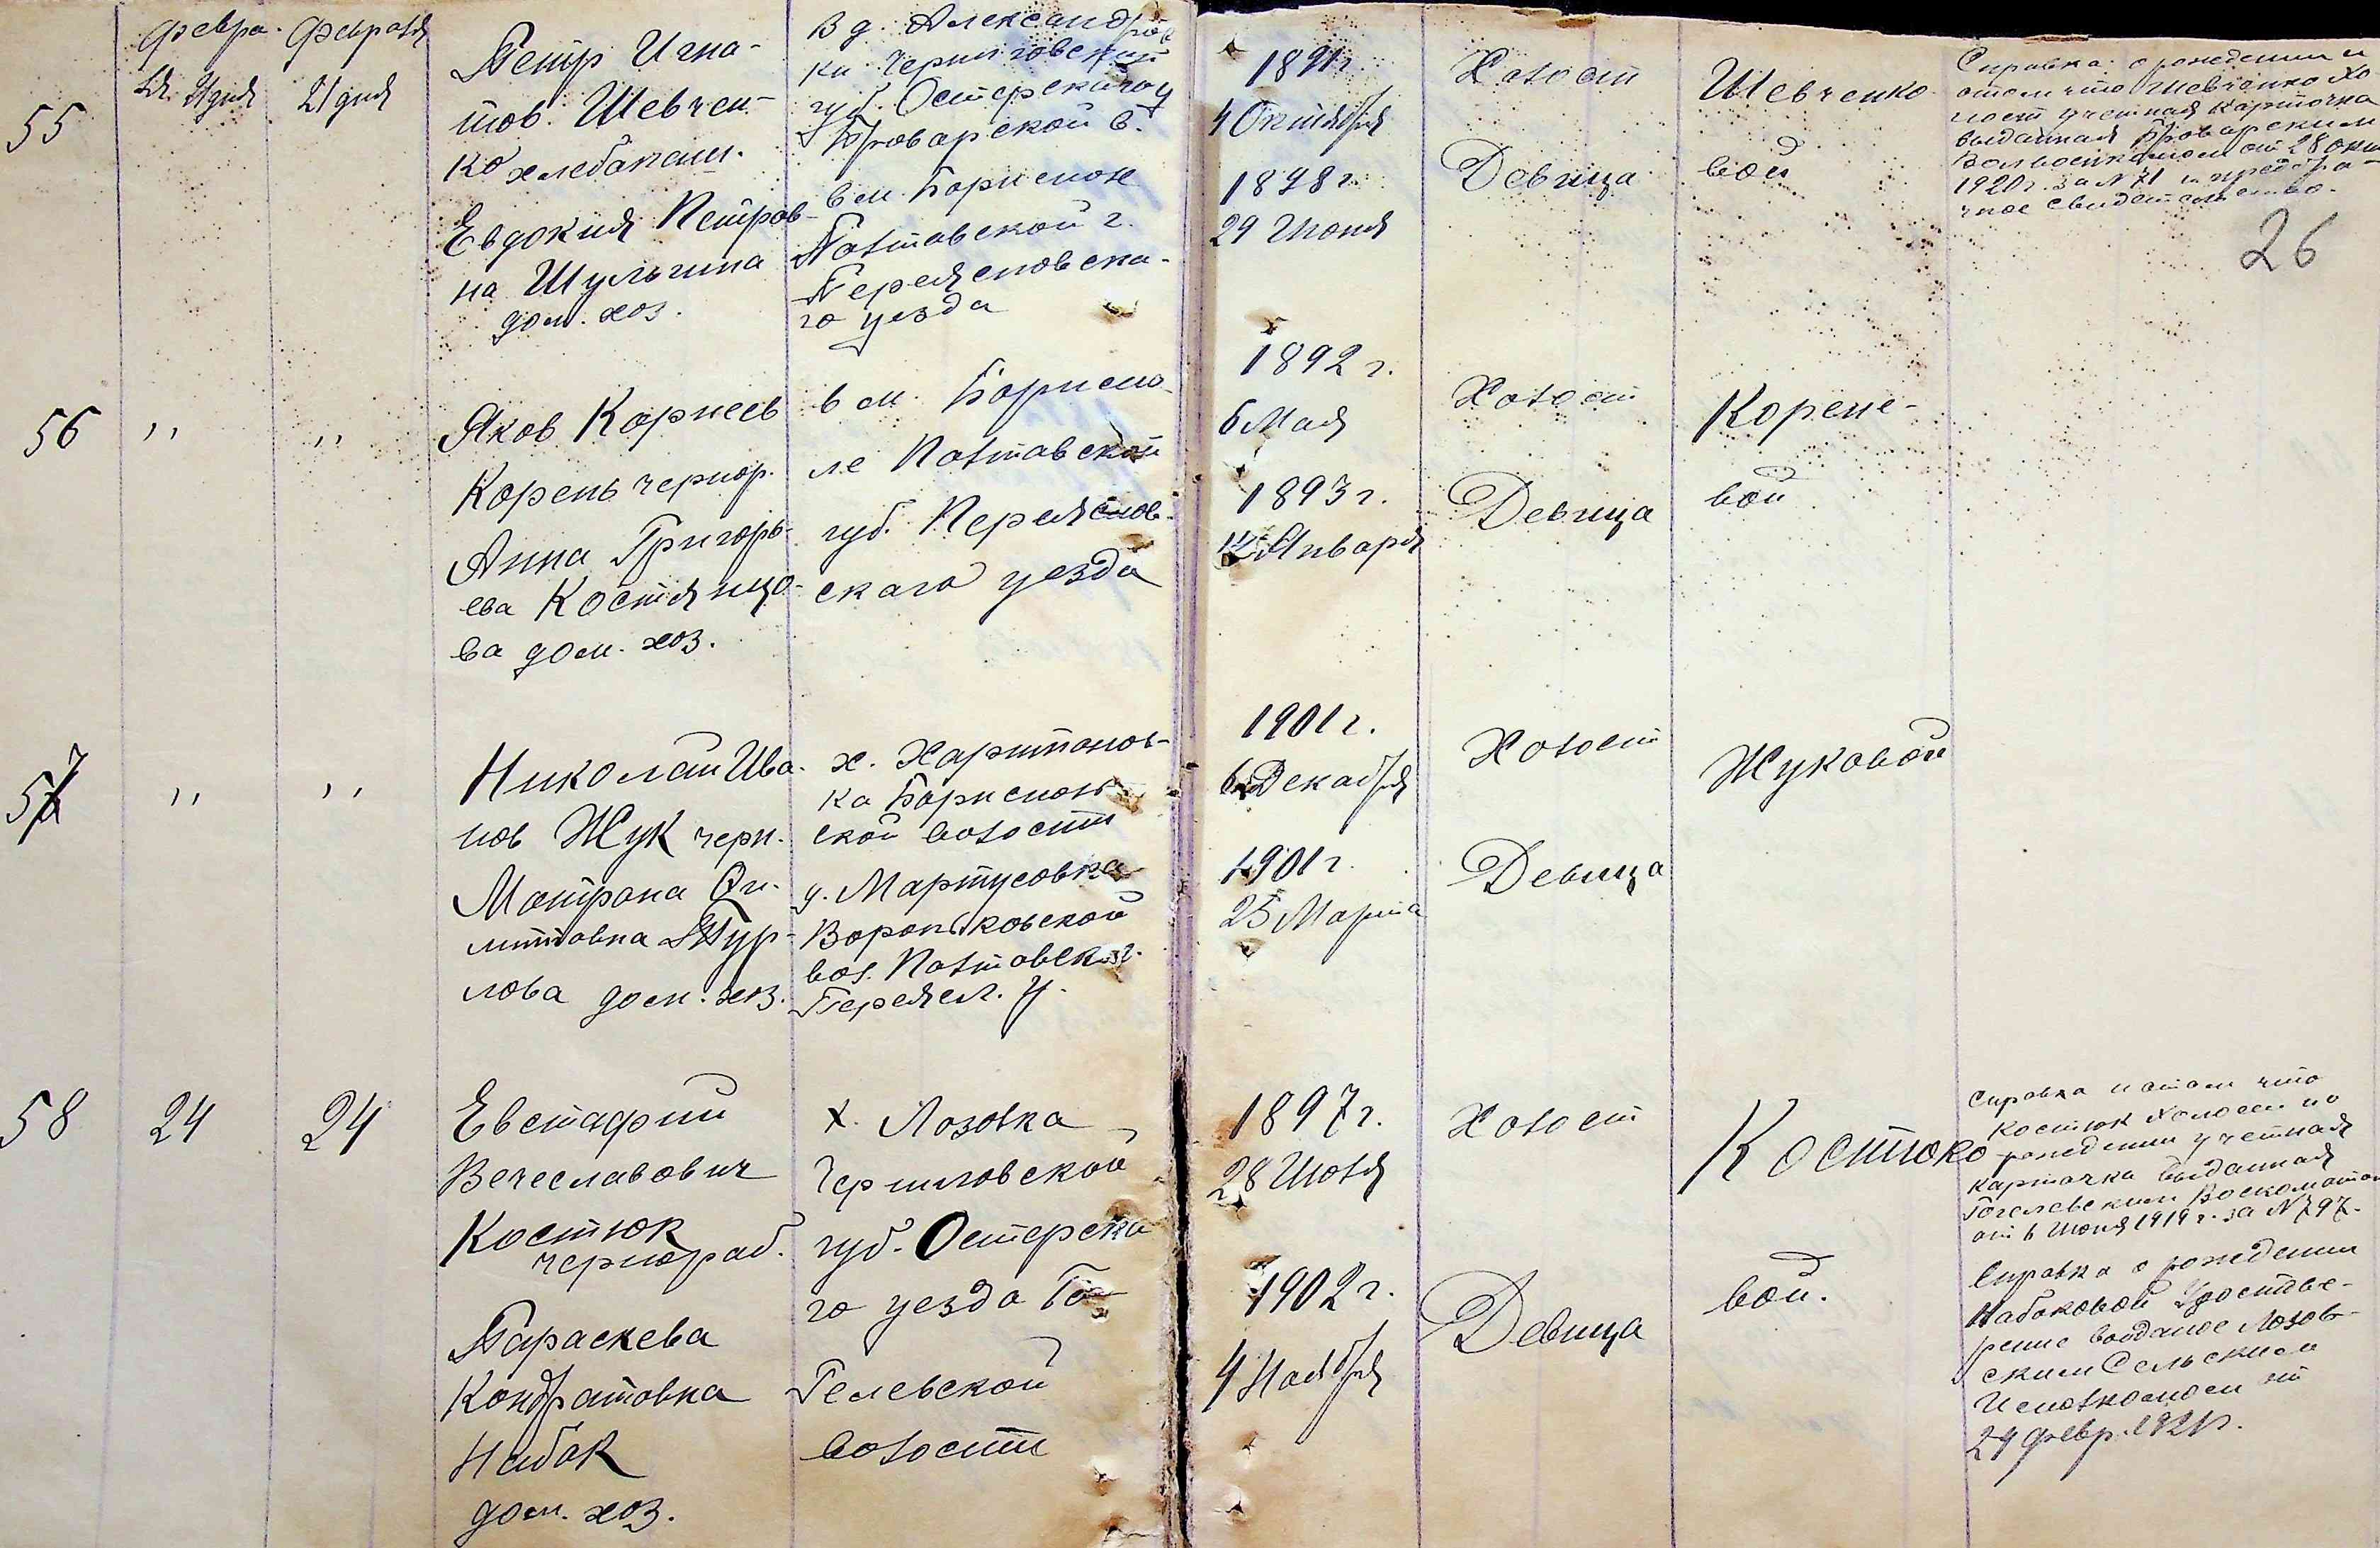 55
февра-
ля 21 дня
февраля
21 дня
Петр Игна-
тов. Шевчен-
ко хлебопаш.
Евдокия Петров-
на Шульгина
дом. хоз.
В д. Александров
ки Черниговской
губ. Остерского у
Броварской в.
в м. Борисполе
Полтавской г.
Переясловска-
го уезда
1891 г.
4 Октября
1898 г.
29 Июня
Холост
Девица
Шевченко-
вой
Справка о рождении и
о том что Шевченко Хо
лост учетная карточка
выданная Броварским
Волвоенкоматом от 28 окт
1920 г. за № 71 и
чное свидетельство.
26
56
,,
,,
Яков Корнеев
Корень чернор.
Анна Григорь-
ева Костянцо-
ва дом. хоз.
в м. Бориспо-
ле Полтавской
губ. Переяслов-
скаго уезда
1892 г.
6 Мая
1893 г.
12 Января
Холост
Девица
Корене-
вой
57
,,
,,
Николай Ива-
нов Жук черн.
Матрона
Тур-
лова дом. хоз.
х. Харитонов-
ка Бориспол-
ской волости
д. Мартусовка
Вороньковской
вол. Полтавск. г.
Переясл. у.
1901 г.
6 Декабря
1901 г.
25 Марта
Холост
Девица
Жуковой
58
24
24
Евстафий
Вечеславович
Костюк
чернораб.
Параскева
Кондратовна
Набок
дом. хоз.
х. Лозовка
Черниговской
губ. Остерска
го уезда Го-
гелевской
волости
1897 г.
28 Июля
1902 г.
4 Ноября
Холост
Девица
Костюко
вой.
Справка и о том что
Костюк Холост по
рождении учетная
карточка выданная
Гогелевским Военкоматом
от 6 Июня 1919 г. за № 797.
Справка о рождении
Набоковой Удостове-
рение выданое Лозов-
ским Сельским
Исполкомом от
24 февр. 1921 г.